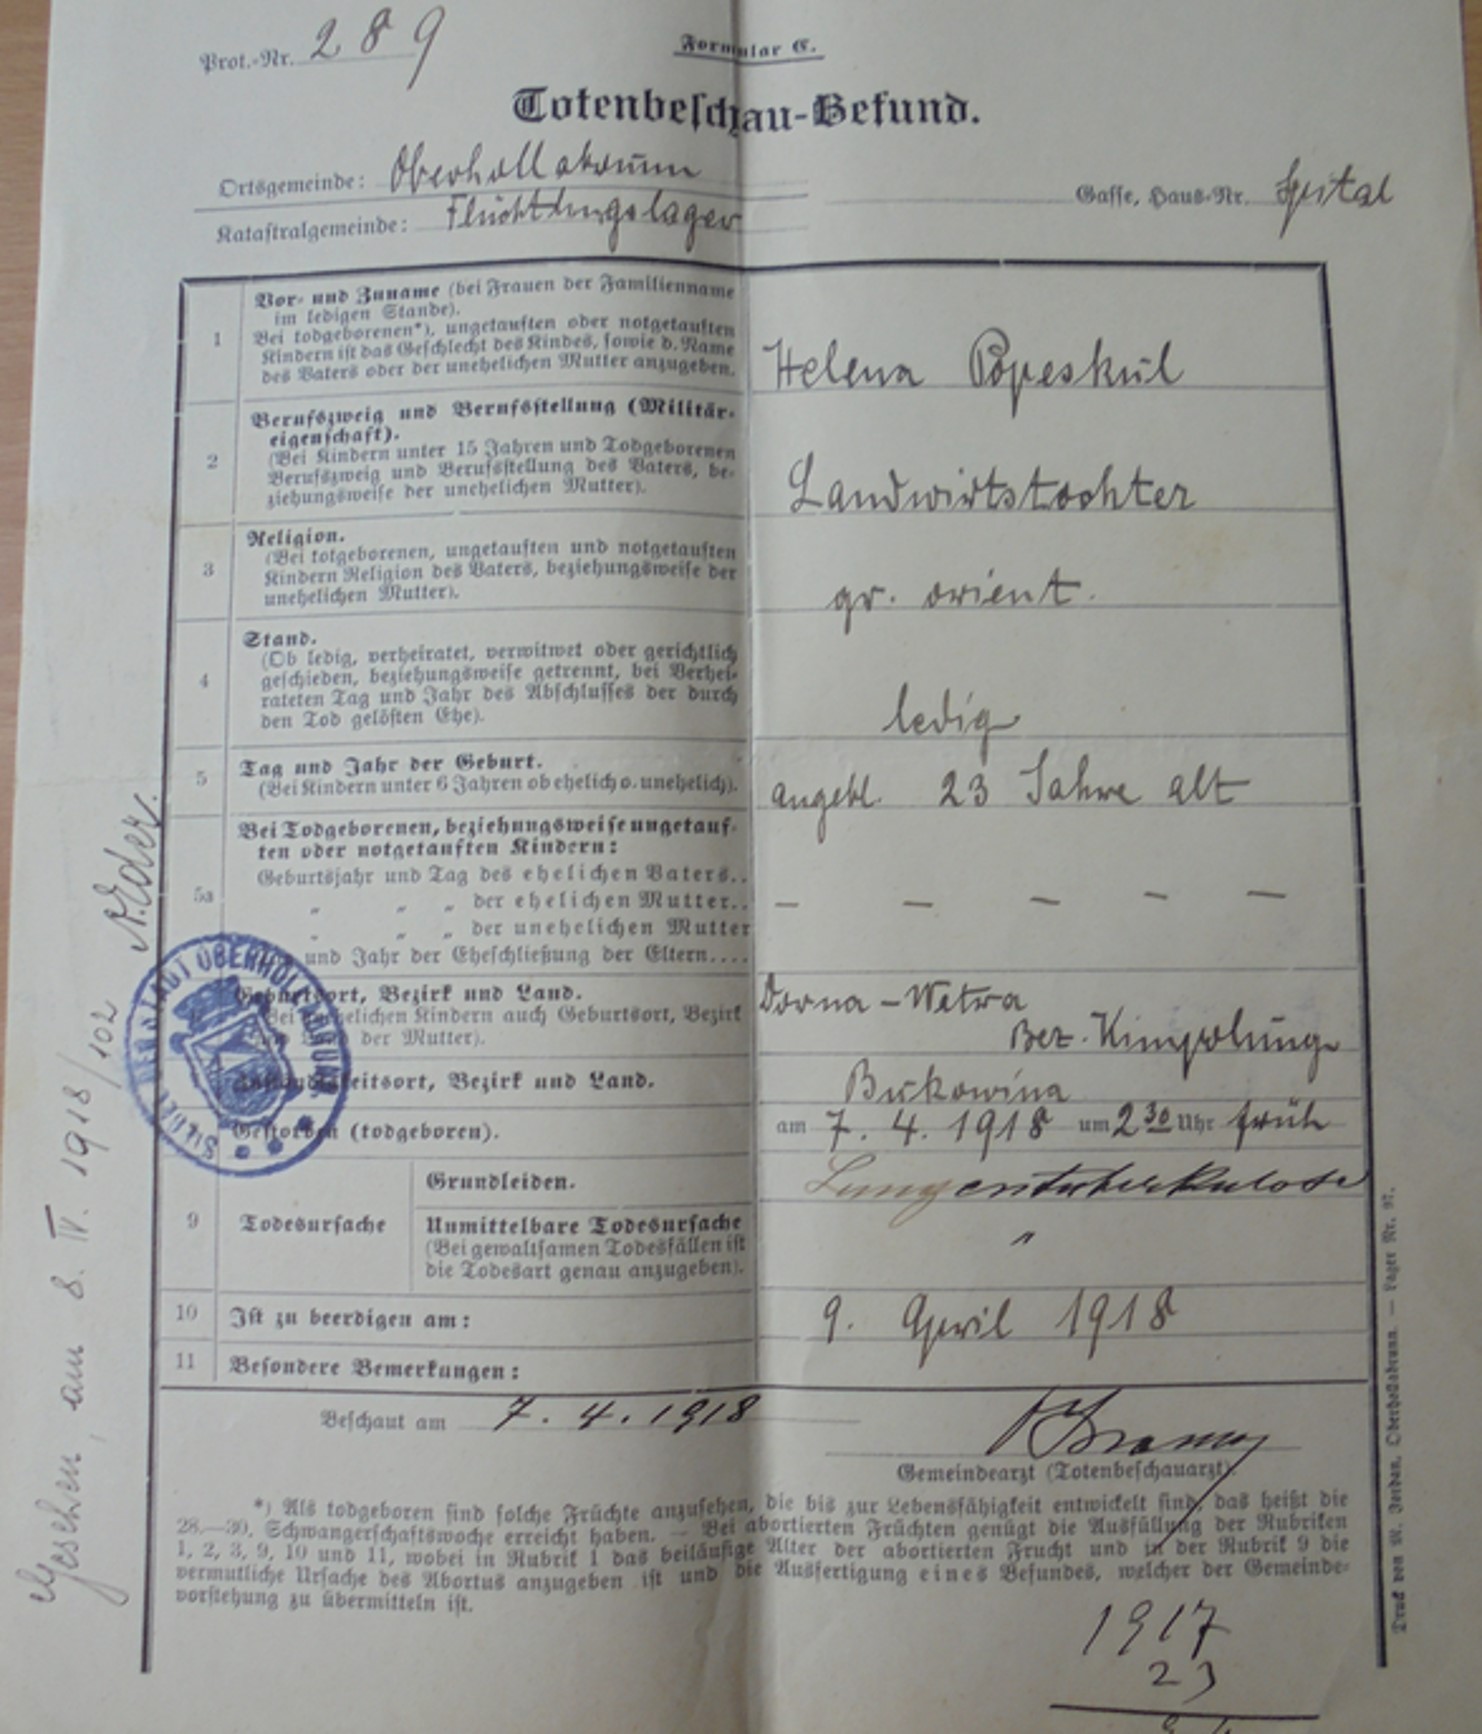 Prot.-Nr. 289
Formular C.
Totenbeschau-Befund.
Ortsgemeinde: Oberhollabrunn
Gasse, Haus-Nr. Spital
Katastralgemeinde: Flüchtlingslager
1 Vor- und Zuname (bei Frauen der Familienname
im ledigen Stande).
Bei todgeborenen*), ungetauften oder notgetauften
Kindern ist das Geschlecht des Kindes, sowie d. Name
des Vaters oder der unehelichen Mutter anzugeben.
Helena Popeskul
2 Berufszweig und Berufsstellung (Militär-
eigenschaft).
(Bei Kindern unter 15 Jahren und Todgeborenen
Berufszweig und Berufsstellung des Vaters, be-
ziehungsweise der unehelichen Mutter).
Landwirtstochter
3 Religion.
(Bei totgeborenen, ungetauften und notgetauften
Kindern Religion des Vaters, beziehungsweise der
unehelichen Mutter).
gr. orient.
4 Stand.
(Ob ledig, verheiratet, verwitwet oder gerichtlich
geschieden, beziehungsweise getrennt, bei Verhei-
rateten Tag und Jahr des Abschlusses der durch
den Tod gelösten Ehe).
ledig
5 Tag und Jahr der Geburt.
(Bei Kindern unter 6 Jahren ob ehelich o. unehelich).
angebl. 23 Jahre alt
5a Bei Todgeborenen, beziehungsweise ungetauf-
ten oder notgetauften Kindern:
Geburtsjahr und Tag des ehelichen Vaters..
" " " der ehelichen Mutter..
" " " der unehelichen Mutter
und Jahr der Eheschließung der Eltern....
— — — — —
Geburtsort, Bezirk und Land.
(Bei unehelichen Kindern auch Geburtsort, Bezirk
der Mutter).
Dorna-Watra
Bez. Kimpolung
Zuständigkeitsort, Bezirk und Land.
Bukowina
Gestorben (todgeboren).
am 7. 4. 1918 um 2 30 Uhr früh
9 Todesursache
Grundleiden.
Lungentuberkulose
Unmittelbare Todesursache
(Bei gewaltsamen Todesfällen ist
die Todesart genau anzugeben).
"
10 Ist zu beerdigen am:
9. April 1918
11 Besondere Bemerkungen:
Beschaut am 7. 4. 1918
Gemeindearzt (Totenbeschauarzt).
*) Als todgeboren sind solche Früchte anzusehen, die bis zur Lebensfähigkeit entwickelt sind, das heißt die
28.—30. Schwangerschaftswoche erreicht haben. — Bei abortierten Früchten genügt die Ausfüllung der Rubriken
1, 2, 3, 9, 10 und 11, wobei in Rubrik 1 das beiläufige Alter der abortierten Frucht und in der Rubrik 9 die
vermutliche Ursache des Abortus anzugeben ist und die Ausfertigung eines Befundes, welcher der Gemeinde-
vorstehung zu übermitteln ist.
1917
23
Gesehen, am 8. IV. 1918/102
Druck von W. Jordan, Oberhollabrunn. — Lager Nr. 97.